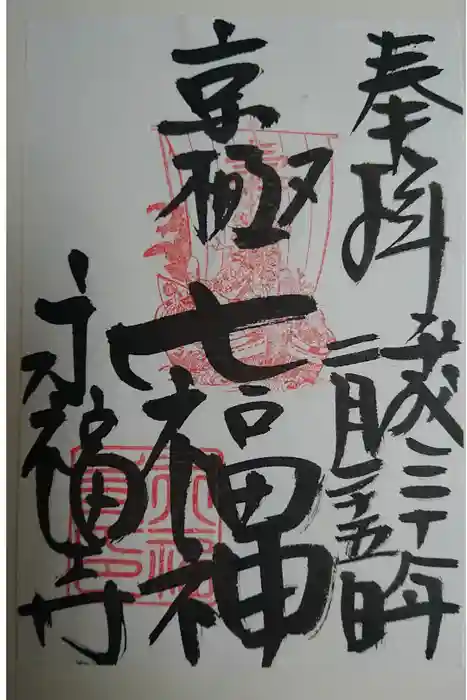 奉拝 平成三十年
二月二十五日
京極七福神
永福寺